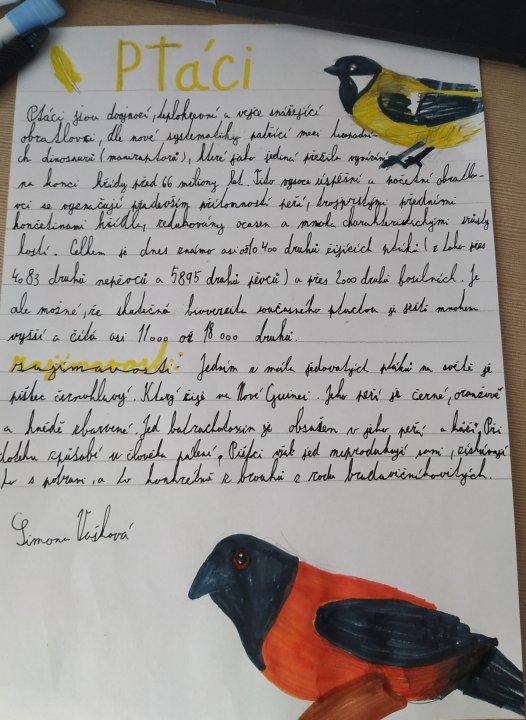 Ptáci
Ptáci jsou dvojnozí, teplokrevní a vejce snášející
obratlovci, dle nové systematiky patřící mezi teropodní-
ch dinosaurů (maniraptorů), které jako jediná přežila vymírání
na konci křídy před 66 miliony let. Tito vysoce úspěšní a početní obratlo-
vci se vyznačují především přítomností peří, trojprstými předními
končetinami křídly, redukovaný ocasem a mnoha charakteristickými srůsty
kostí. Celkem je dnes známo asi 10 400 druhů žijících ptáků (z toho přes
4083 druhů nepěvců a 5895 druhů pěvců) a přes 2000 druhů fosilních. Je
ale možné, že skutečná bioverzita současného ptactva je ještě mnohem
vyšší a čítá asi 11000 až 18 000 druhů.
zajímavosti: Jedním z mála jedovatých ptáků na světě je
pištec černohlavý. Který žije na Nové Guinei. Jeho peří je černé, oranžově
a hnědě zbarvené. Jed batrachotoxin je obsažen v jeho peří a kůži. Při
doteku způsobí u člověka pálení. Pištci však jed neprodukují sami, získávají
ho s potravi, a to konkrétně z brouků z rodu bradavičníkovitých.
Simona Vašková